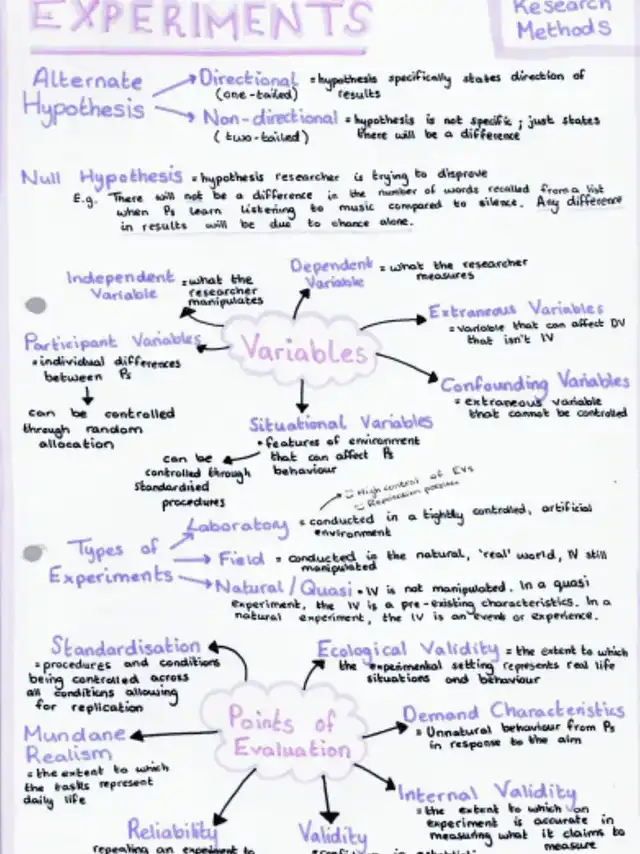 EXPERIMENTS
Research
Methods
Alternate
Hypothesis
Directional = hypothesis specifically states direction of
(one-tailed) results
Non-directional = hypothesis is not specific; just states
(two-tailed) there will be a difference
Null Hypothesis = hypothesis researcher is trying to disprove
E.g. There will not be a difference in the number of words recalled from a list
when Ps learn listening to music compared to silence. Any difference
in results will be due to chance alone.
Independent
Variable
= what the
researcher
manipulates
Dependent
Variable
= what the researcher
measures
Extraneous Variables
= variable that can affect DV
that isn't IV
Participant Variables
• individual differences
between Ps
can be controlled
through random
allocation
Variables
Confounding Variables
= extraneous variable
that cannot be controlled
Situational Variables
• features of environment
that can affect Ps
behaviour
can be
controlled through
Standardised
procedures
High control of EVs
Replication
Types of
Experiments
Laboratory = conducted in a tightly controlled, artificial
environment
Field = conducted in the natural, 'real' world, IV still
manipulated
Natural/Quasi • IV is not manipulated. In a quasi
experiment, the IV is a pre-existing characteristics. In a
natural experiment, the IV is an event or experience.
Standardisation
= procedures and conditions
being controlled across
all conditions allowing
for replication
Ecological Validity = the extent to which
the experimental setting represents real life
situations and behaviour
Points of
Evaluation
Demand Characteristics
= Unnatural behaviour from Ps
in response to the aim
Mundane
Realism
= the extent to which
the tasks represent
daily life
Internal Validity
= the extent to which an
experiment is accurate in
measuring what it claims to
measure
Reliability
repeating an experiment to
Validity